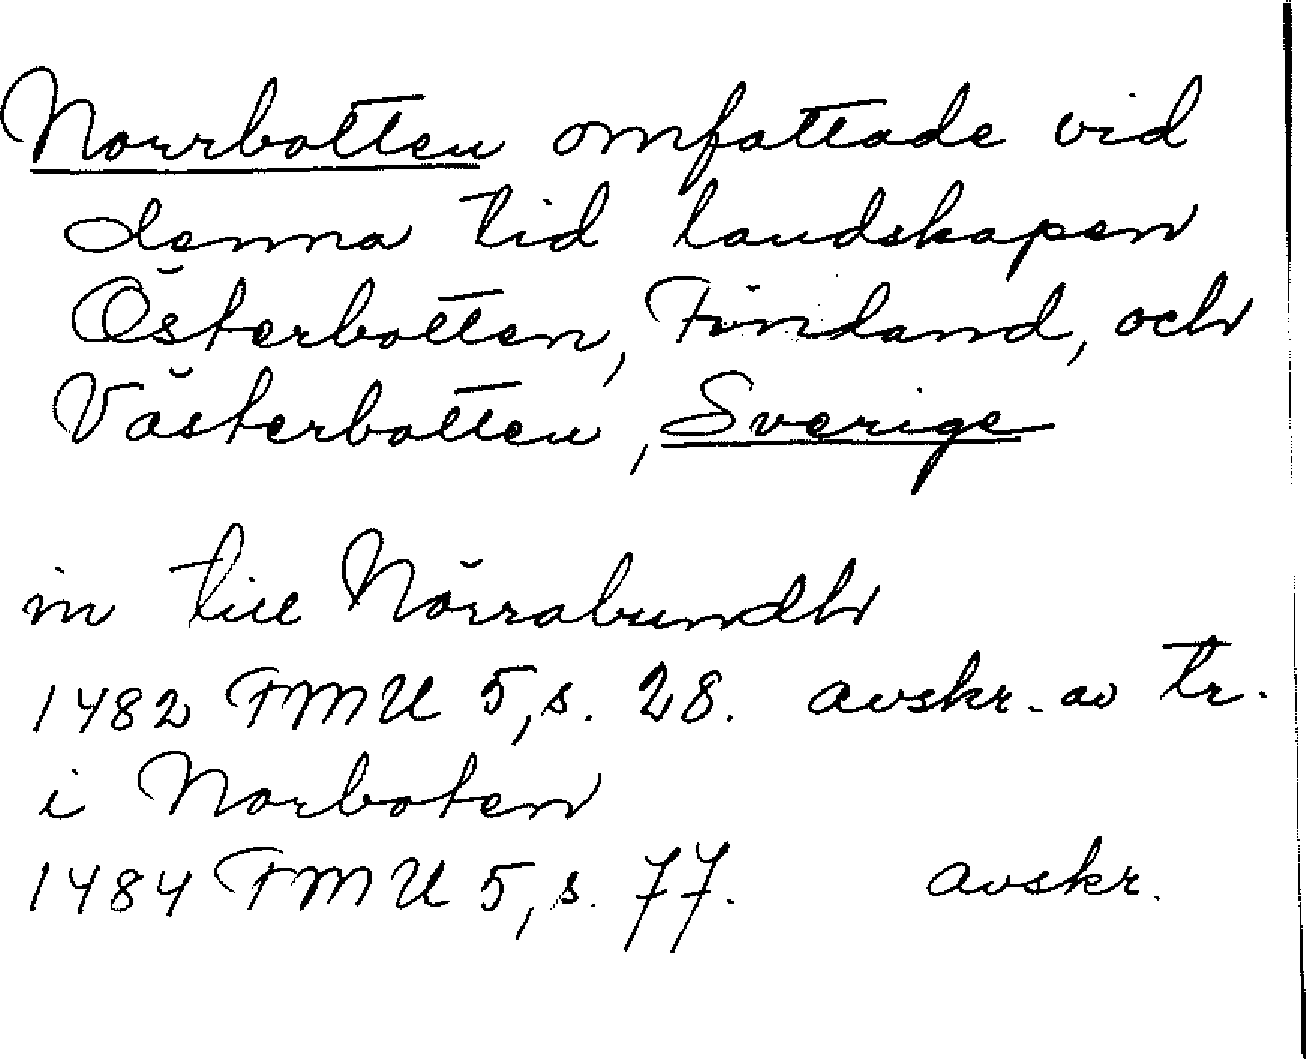 Norrbotten omfattade vid
denna tid landskapen
Österbotten, Finland, och
Västerbotten, Sverige
in till Nörrabundh
1482 FMU 5, s. 28. avskr. av tr.
i Norboten
1484 FMU 5, s. 77. avskr.